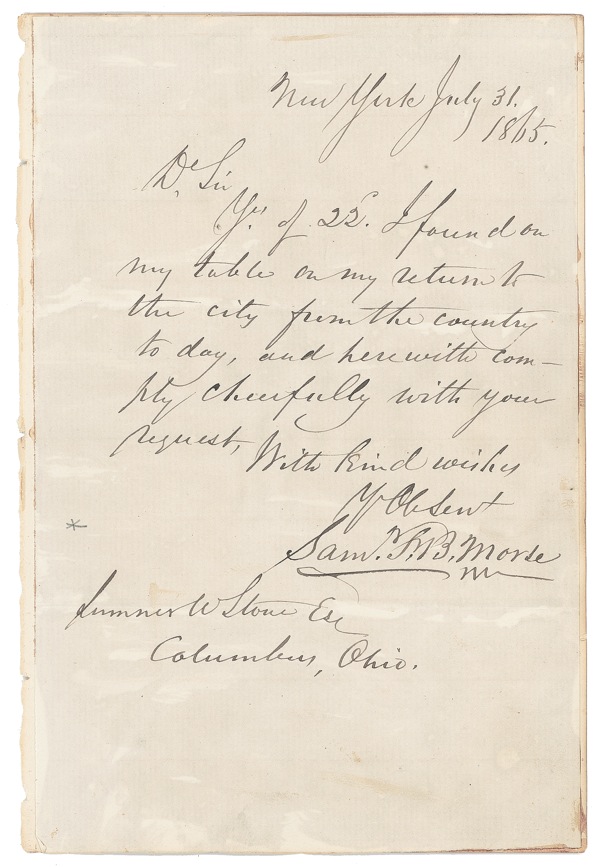 New York July 31.
1865.
Dr Sir
Yrs of 22d. I found on
my table on my return to
the city from the country
to day, and herewith com-
ply cheerfully with your
request,
With kind wishes
Yr Ob Servt
Saml. F. B. Morse
Sumner W Stone Esq
Columbus, Ohio.